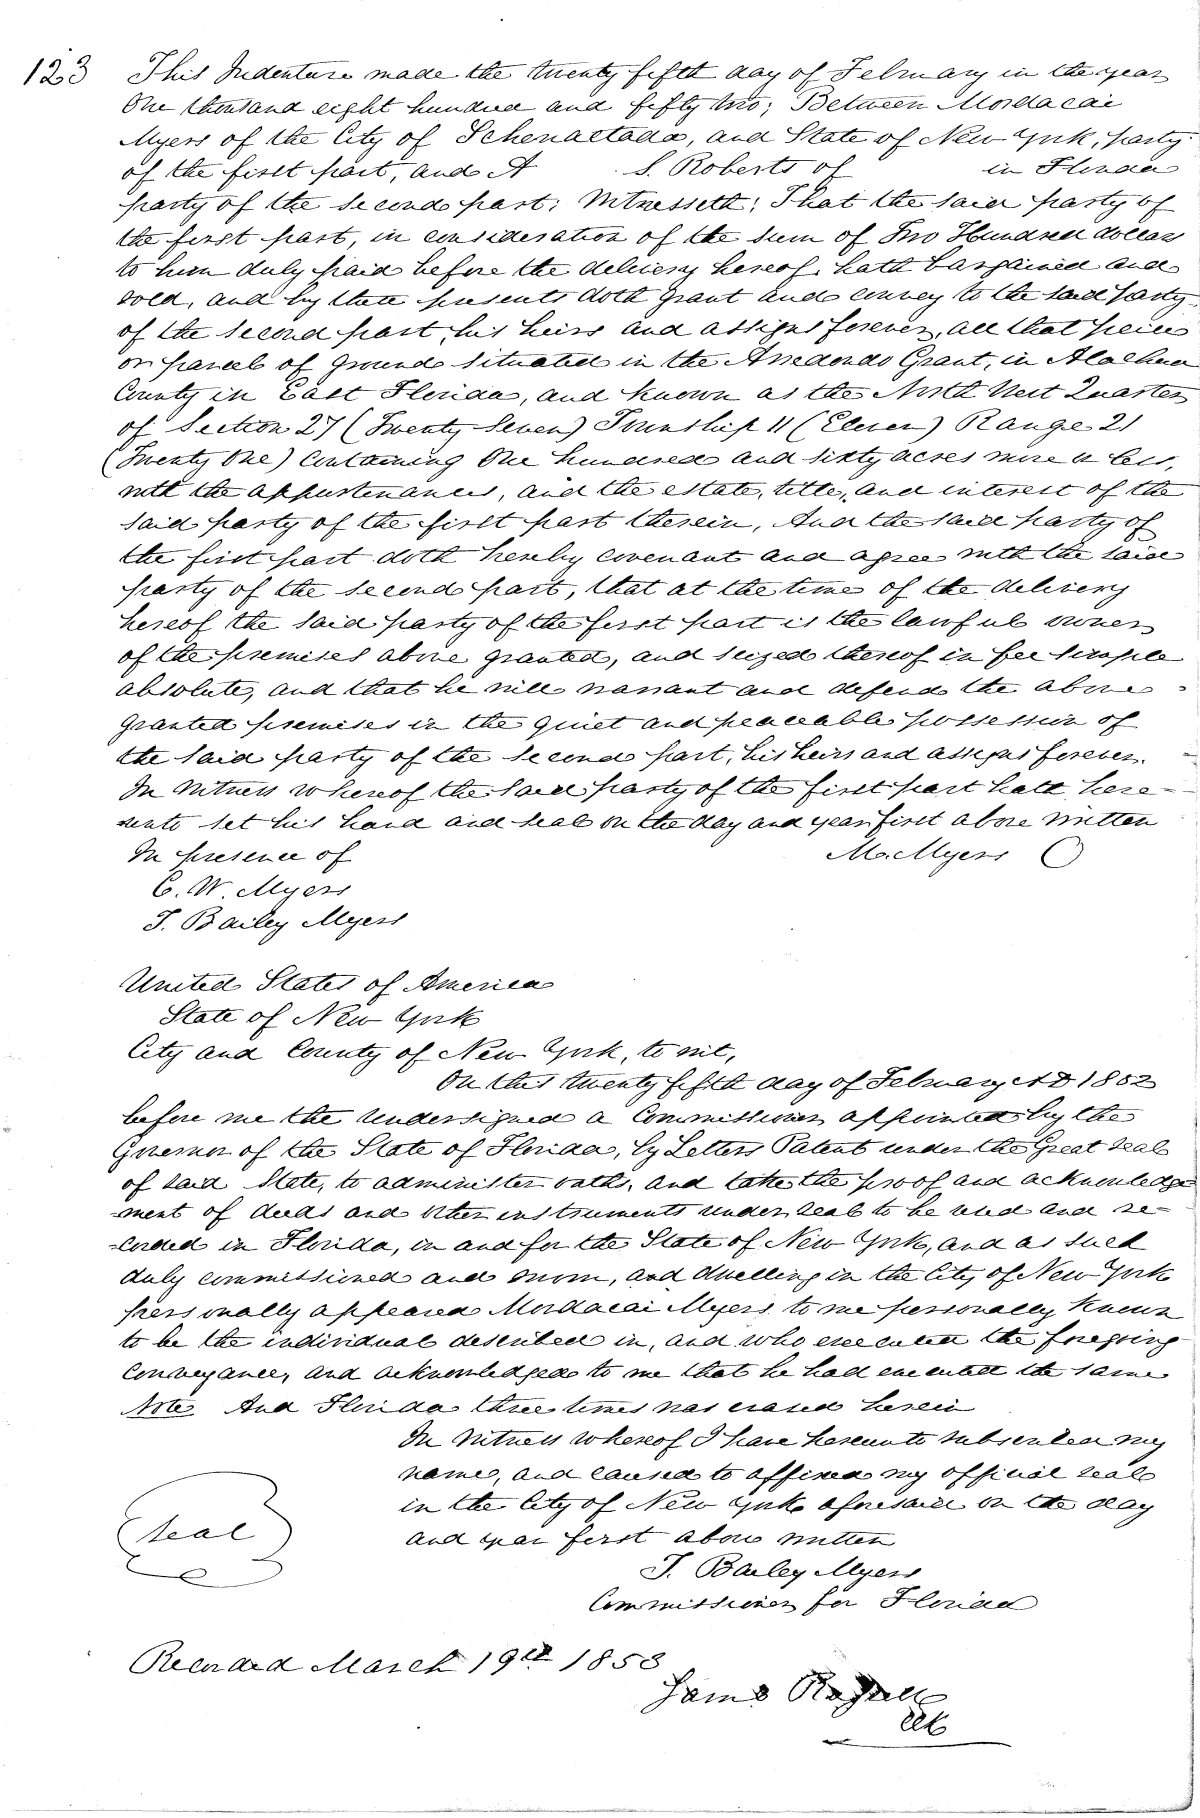 123 This Indenture made the twenty fifth day of February in the year
One thousand eight hundred and fifty two; Between Mordacai
Myers of the City of Schenactada, and State of New York, party
of the first part, and A S. Roberts of in Florida
party of the second part; Witnesseth; That the said party of
the first part, in consideration of the sum of Two Hundred dollars
to him duly paid before the delivery hereof, hath bargained and
sold, and by these presents doth grant and convey to the said party
of the second part, his heirs and assigns forever, all that peice
or parcel of ground situated in the Arredondo Grant, in Alachua
County in East Florida, and known as the North West Quarter
of Section 27 (Twenty Seven) Township 11 (Eleven) Range 21
(Twenty One) Containing One hundred and sixty acres more or less,
with the appurtenances, and the estate, title, and interest of the
said party of the first part therein, And the said party of
the first part doth hereby covenant and agree with the said
party of the second part, that at the time of the delivery
hereof the said party of the first part is the lawful owner
of the premises above granted, and seized thereof in fee simple
absolute, and that he will warrant and defend the above
granted premises in the quiet and peaceable possession of
the said party of the second part, his heirs and assigns forever.
In Witness whereof the said party of the first part hath here-
unto set his hand and seal on the day and year first above written
In presence of M. Myers
C. W. Myers
T. Bailey Myers
United States of America
State of New York
City and County of New York, to wit,
On this twenty fifth day of February A D 1852
before me the undersigned a Commissioner appointed by the
Governor of the State of Florida, by Letters Patent under the Great seal
of said State, to administer oaths, and take the proof and acknowledge
-ment of deeds and other instruments under seal to be used and re-
-corded in Florida, in and for the State of New York, and as such
duly commissioned and sworn, and dwelling in the City of New York
personally appeared Mordacai Myers to me personally known
to be the individual described in, and who executed the foregoing
conveyance, and acknowledged to me that he had executed the same
Note And Florida three times was erased herein
In Witness whereof I have hereunto subscribed my
name, and caused to affixed my official seal
in the City of New York aforesaid on the day
and year first above written
Seal
T. Bailey Myers
Commissioner for Florida
Recorded March 19th 1853
Clk